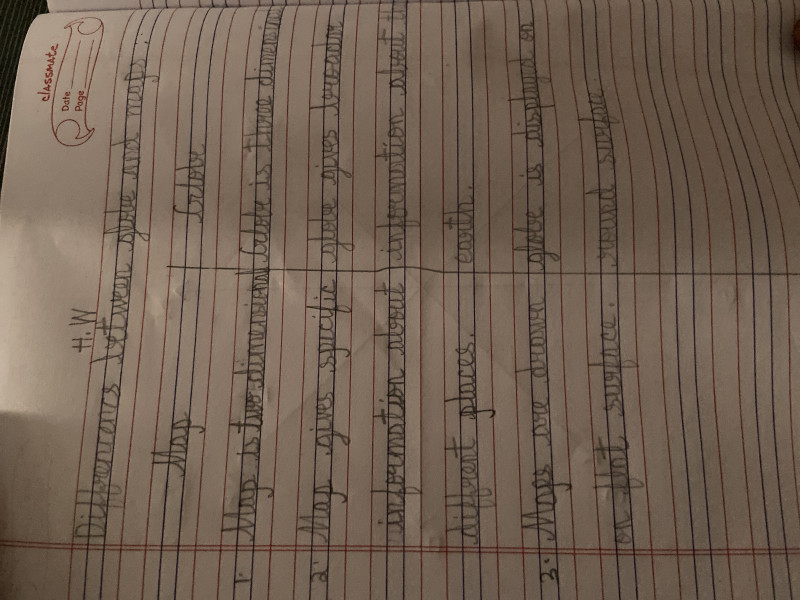 classmate
Date
Page
H.W
Differences between globe and maps.
Map Globe
1. Map is two dimensional Globe is three dimension
2. Map gives specific globe gives broader
information about information about
different places. earth.
3. Maps are drawn globe is displayed on
on flat surface. round surface.